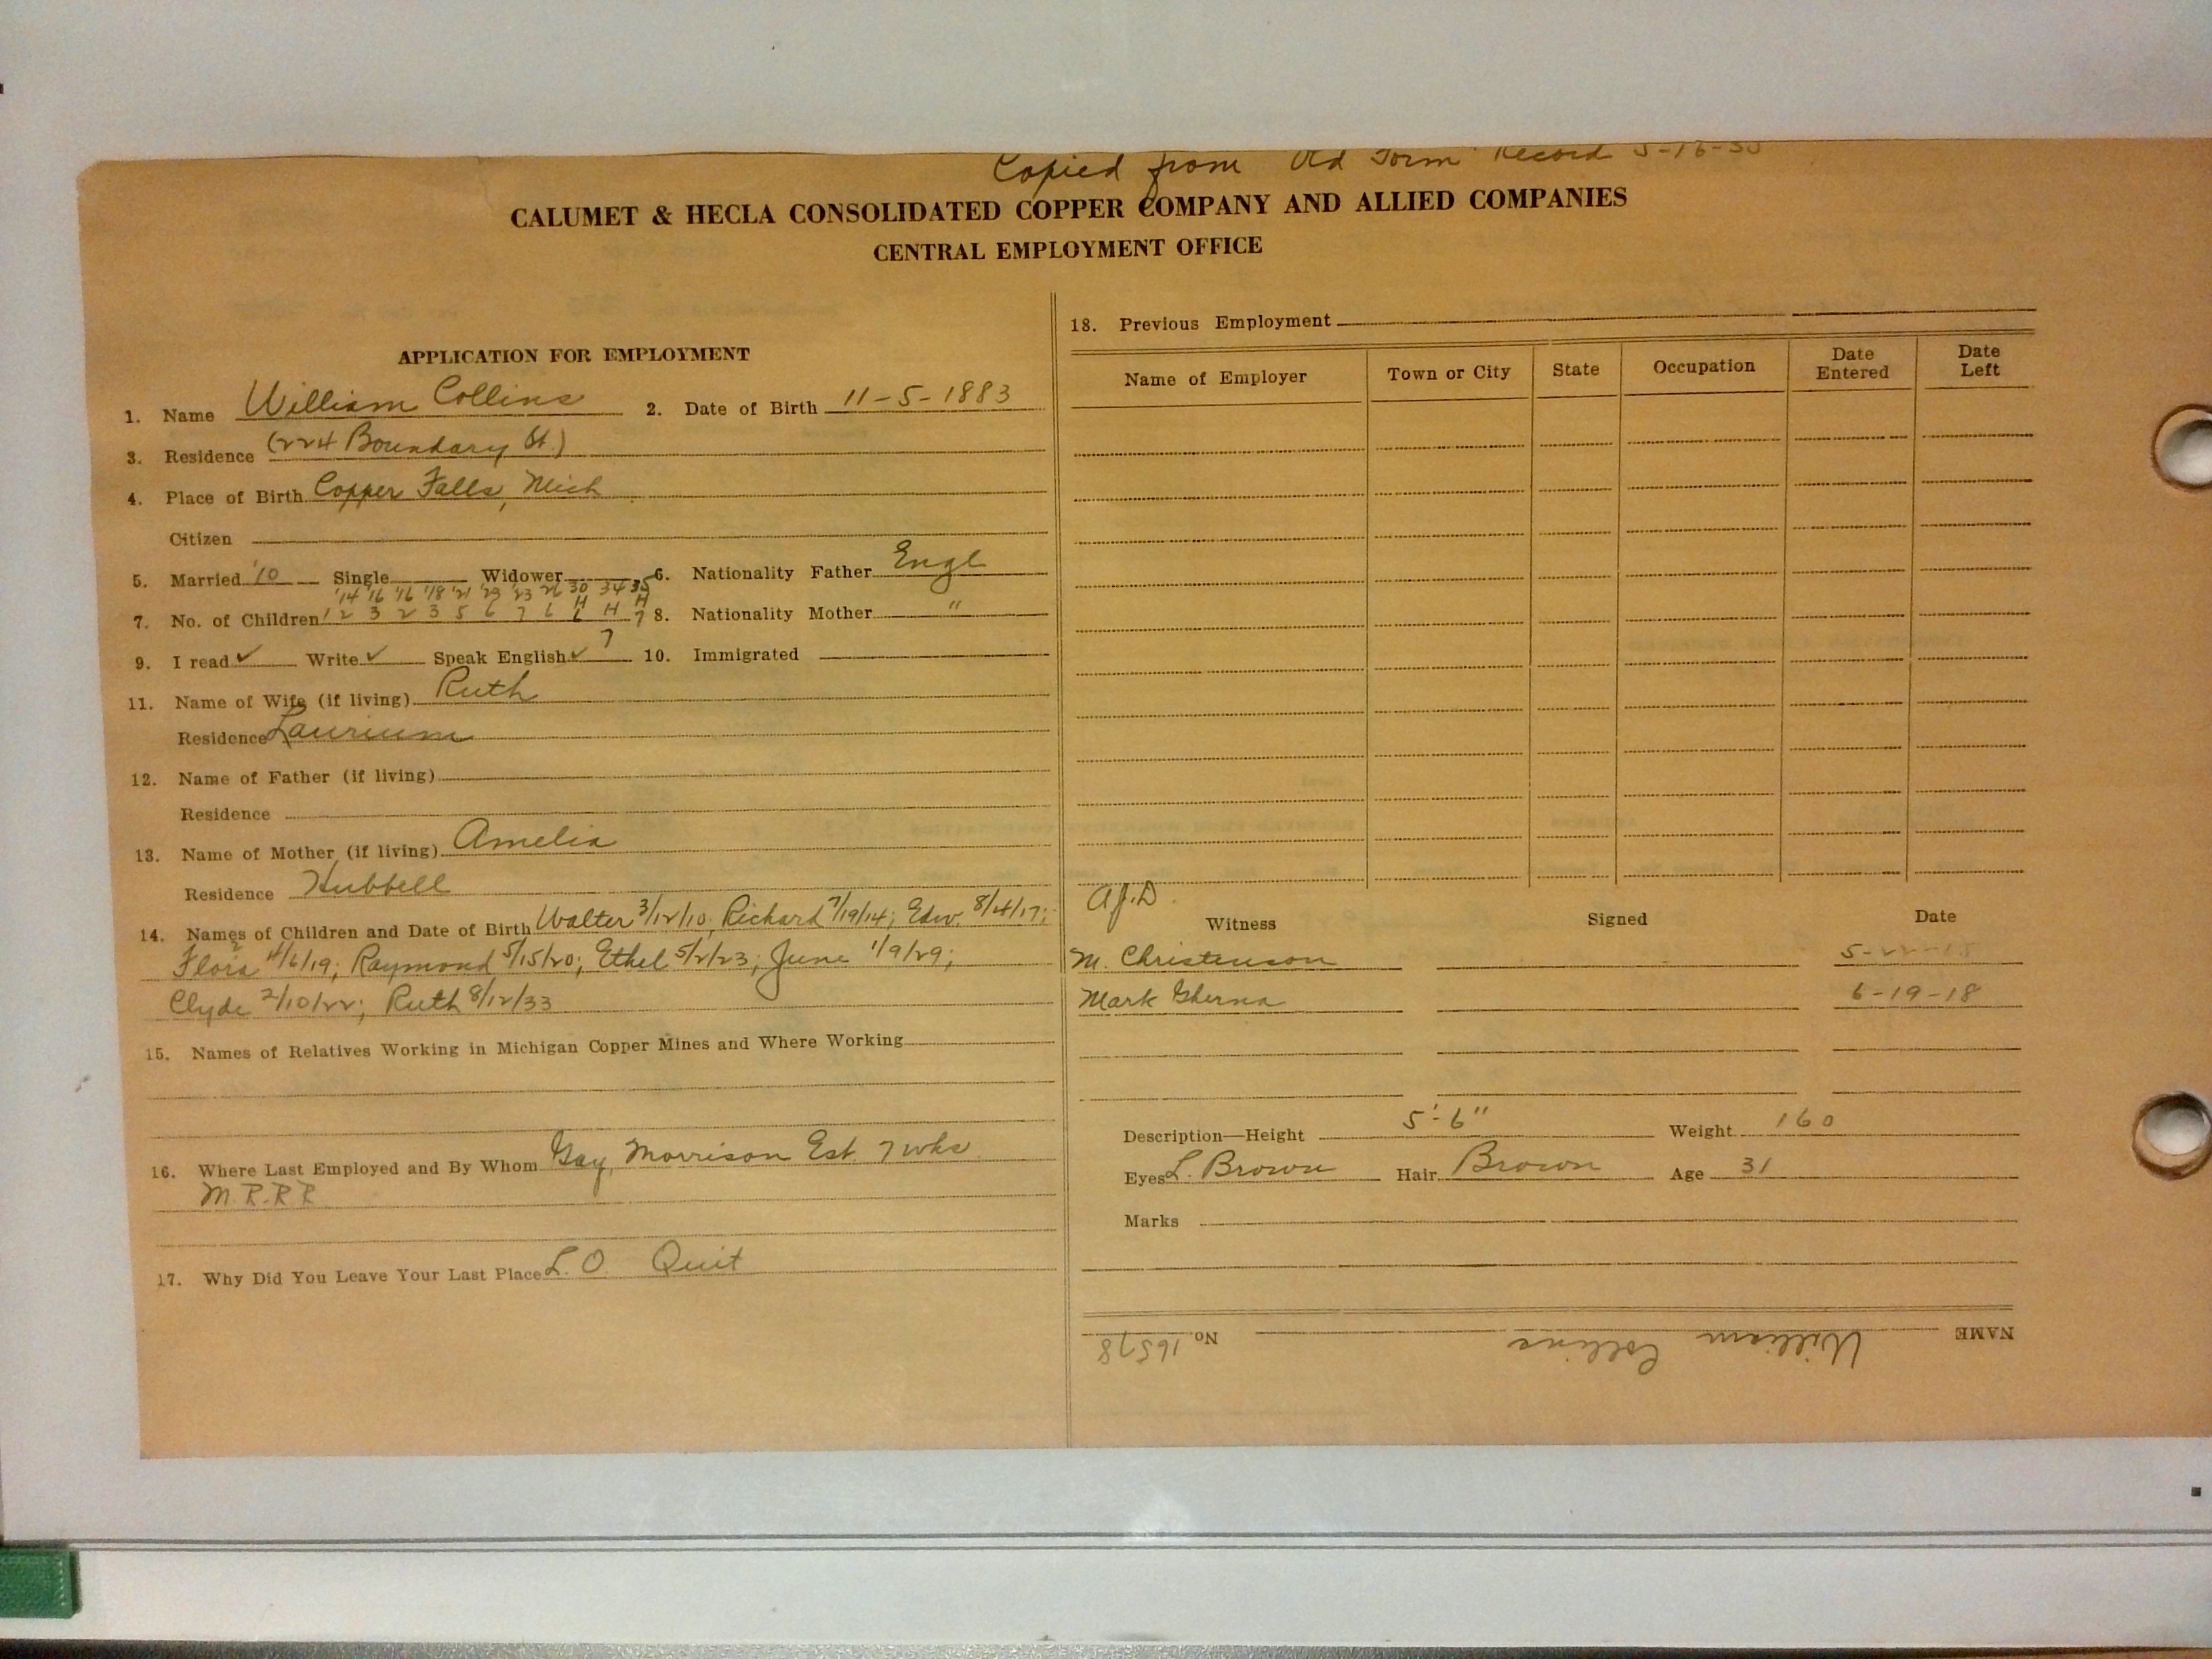 Copied from Old Form Record 5-16-35
CALUMET & HECLA CONSOLIDATED COPPER COMPANY AND ALLIED COMPANIES
CENTRAL EMPLOYMENT OFFICE
APPLICATION FOR EMPLOYMENT
1. Name William Collins 2. Date of Birth 11-5-1883
3. Residence (224 Boundary St.)
4. Place of Birth Copper Falls, Mich
Citizen
5. Married '10 Single Widower 6. Nationality Father Engl
'14 '16 '16 '18 '21 '23 '23 26 30 34 35
H H H
7. No. of Children 1 2 3 2 3 5 6 7 6 6 7 8. Nationality Mother "
7
9. I read ✓ Write ✓ Speak English ✓ 10. Immigrated
11. Name of Wife (if living) Ruth
Residence Laurium
12. Name of Father (if living)
Residence
13. Name of Mother (if living) Amelia
Residence Hubbell
14. Names of Children and Date of Birth Walter 3/12/10, Richard 7/19/14; Edw. 8/4/17;
Flora 4/6/19; Raymond 5/15/20; Ethel 5/2/23; June 1/9/29;
Clyde 2/10/22; Ruth 8/12/33
15. Names of Relatives Working in Michigan Copper Mines and Where Working
16. Where Last Employed and By Whom Gay, Morrison Est. 7 wks
M.R.R.R
17. Why Did You Leave Your Last Place L.O. Quit
18. Previous Employment
Name of Employer Town or City State Occupation Date Entered Date Left
A.J.D.
Witness Signed Date
M. Christenson 5-22-15
Mark Gherna 6-19-18
Description—Height 5'-6" Weight 160
Eyes L. Brown Hair Brown Age 31
Marks
NAME William Collins No. 16578